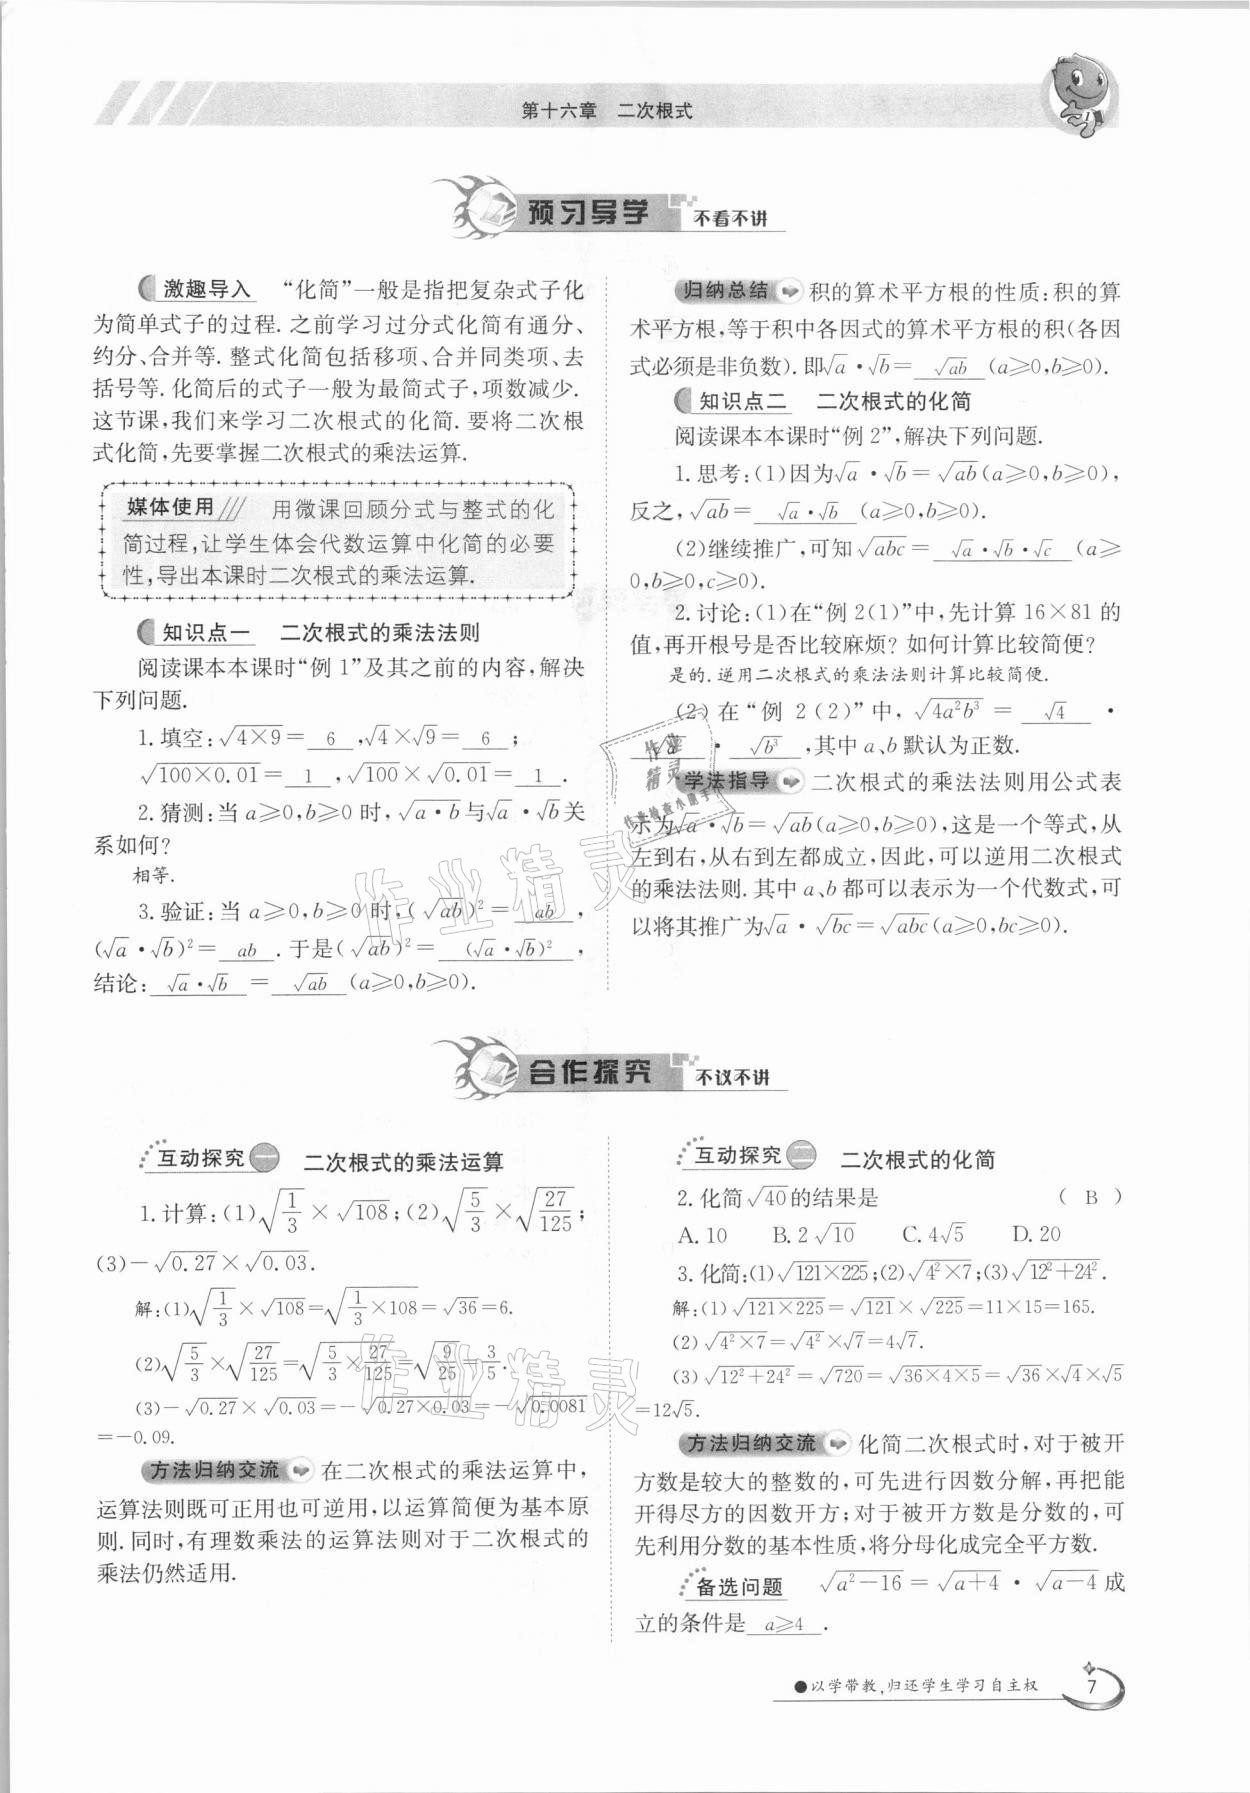 第十六章 二次根式
预习导学 不看不讲
激趣导入 “化简”一般是指把复杂式子化
为简单式子的过程. 之前学习过分式化简有通分、
约分、合并等. 整式化简包括移项、合并同类项、去
括号等. 化简后的式子一般为最简式子,项数减少.
这节课,我们来学习二次根式的化简. 要将二次根
式化简,先要掌握二次根式的乘法运算.
媒体使用 用微课回顾分式与整式的化
简过程,让学生体会代数运算中化简的必要
性,导出本课时二次根式的乘法运算.
知识点一 二次根式的乘法法则
阅读课本本课时“例 1”及其之前的内容,解决
下列问题.
1. 填空:√(4×9)= 6 ,√4×√9= 6 ;
√(100×0.01)= 1 ,√100×√0.01= 1 .
2. 猜测:当 a≥0,b≥0 时,√(a·b)与√a·√b关
系如何?
相等.
3. 验证:当 a≥0,b≥0 时,(√ab)²= ab ,
(√a·√b)²= ab .于是(√ab)²= (√a·√b)² ,
结论: √a·√b = √ab (a≥0,b≥0).
归纳总结 积的算术平方根的性质:积的算
术平方根,等于积中各因式的算术平方根的积(各因
式必须是非负数). 即√a·√b= √ab (a≥0,b≥0).
知识点二 二次根式的化简
阅读课本本课时“例 2”,解决下列问题.
1. 思考:(1)因为√a·√b=√ab(a≥0,b≥0),
反之,√ab= √a·√b (a≥0,b≥0).
(2)继续推广,可知√abc= √a·√b·√c (a≥
0,b≥0,c≥0).
2. 讨论:(1)在“例 2(1)”中,先计算 16×81 的
值,再开根号是否比较麻烦? 如何计算比较简便?
是的. 逆用二次根式的乘法法则计算比较简便.
(2) 在“例 2(2)”中,√(4a²b³)= √4 ·
· √b³ ,其中 a、b 默认为正数.
学法指导 二次根式的乘法法则用公式表
示为√a·√b=√ab(a≥0,b≥0),这是一个等式,从
左到右,从右到左都成立,因此,可以逆用二次根式
的乘法法则. 其中 a、b 都可以表示为一个代数式,可
以将其推广为√a·√bc=√abc(a≥0,bc≥0).
合作探究 不议不讲
互动探究一 二次根式的乘法运算
1. 计算:(1)√(1/3)×√108;(2)√(5/3)×√(27/125);
(3)-√0.27×√0.03.
解:(1)√(1/3)×√108=√(1/3×108)=√36=6.
(2)√(5/3)×√(27/125)=√(5/3×27/125)=√(9/25)=3/5.
(3)-√0.27×√0.03=-√(0.27×0.03)=-√0.0081
=-0.09.
方法归纳交流 在二次根式的乘法运算中,
运算法则既可正用也可逆用,以运算简便为基本原
则. 同时,有理数乘法的运算法则对于二次根式的
乘法仍然适用.
互动探究二 二次根式的化简
2. 化简√40的结果是 ( B )
A. 10 B. 2√10 C. 4√5 D. 20
3. 化简:(1)√(121×225);(2)√(4²×7);(3)√(12²+24²).
解:(1)√(121×225)=√121×√225=11×15=165.
(2)√(4²×7)=√4²×√7=4√7.
(3)√(12²+24²)=√720=√(36×4×5)=√36×√4×√5
=12√5.
方法归纳交流 化简二次根式时,对于被开
方数是较大的整数的,可先进行因数分解,再把能
开得尽方的因数开方;对于被开方数是分数的,可
先利用分数的基本性质,将分母化成完全平方数.
备选问题 √(a²-16)=√(a+4)·√(a-4)成
立的条件是 a≥4 .
●以学带教,归还学生学习自主权
7
作业精灵
作业检查小助手
作业精灵
作业精灵